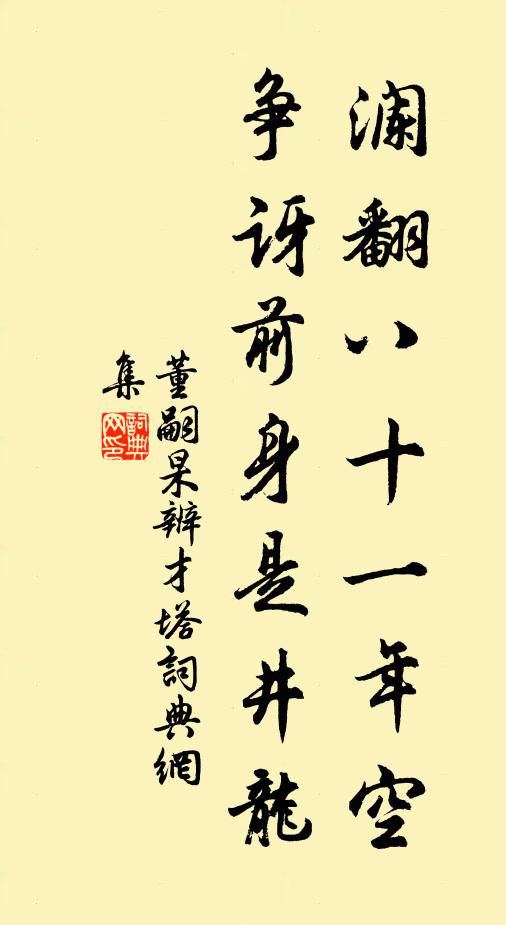 澜翻八十一年空
争讶前身是井龍
董嗣杲辨才塔詞典網
集
詞典
网印